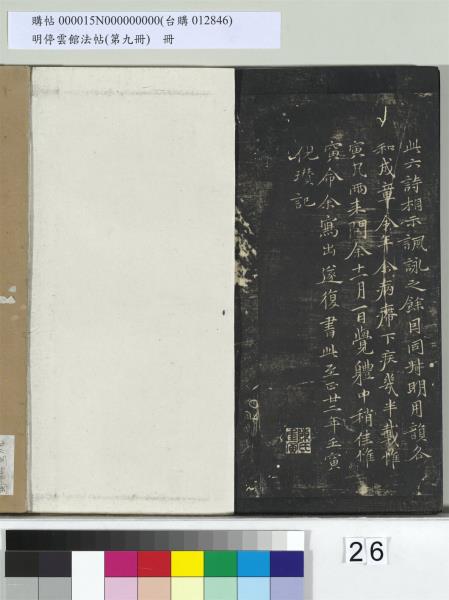 購帖 000015N000000000(台購 012846)
明停雲館法帖(第九冊) 冊
此六詩相示諷詠之餘因同尌明用韻各
和成章余年余病滯下疾幾半載惟
寅凡兩来問余十一月一日覺軆中稍佳惟
寅命余寫出遂復書此至正廿二年壬寅
倪瓚記
26